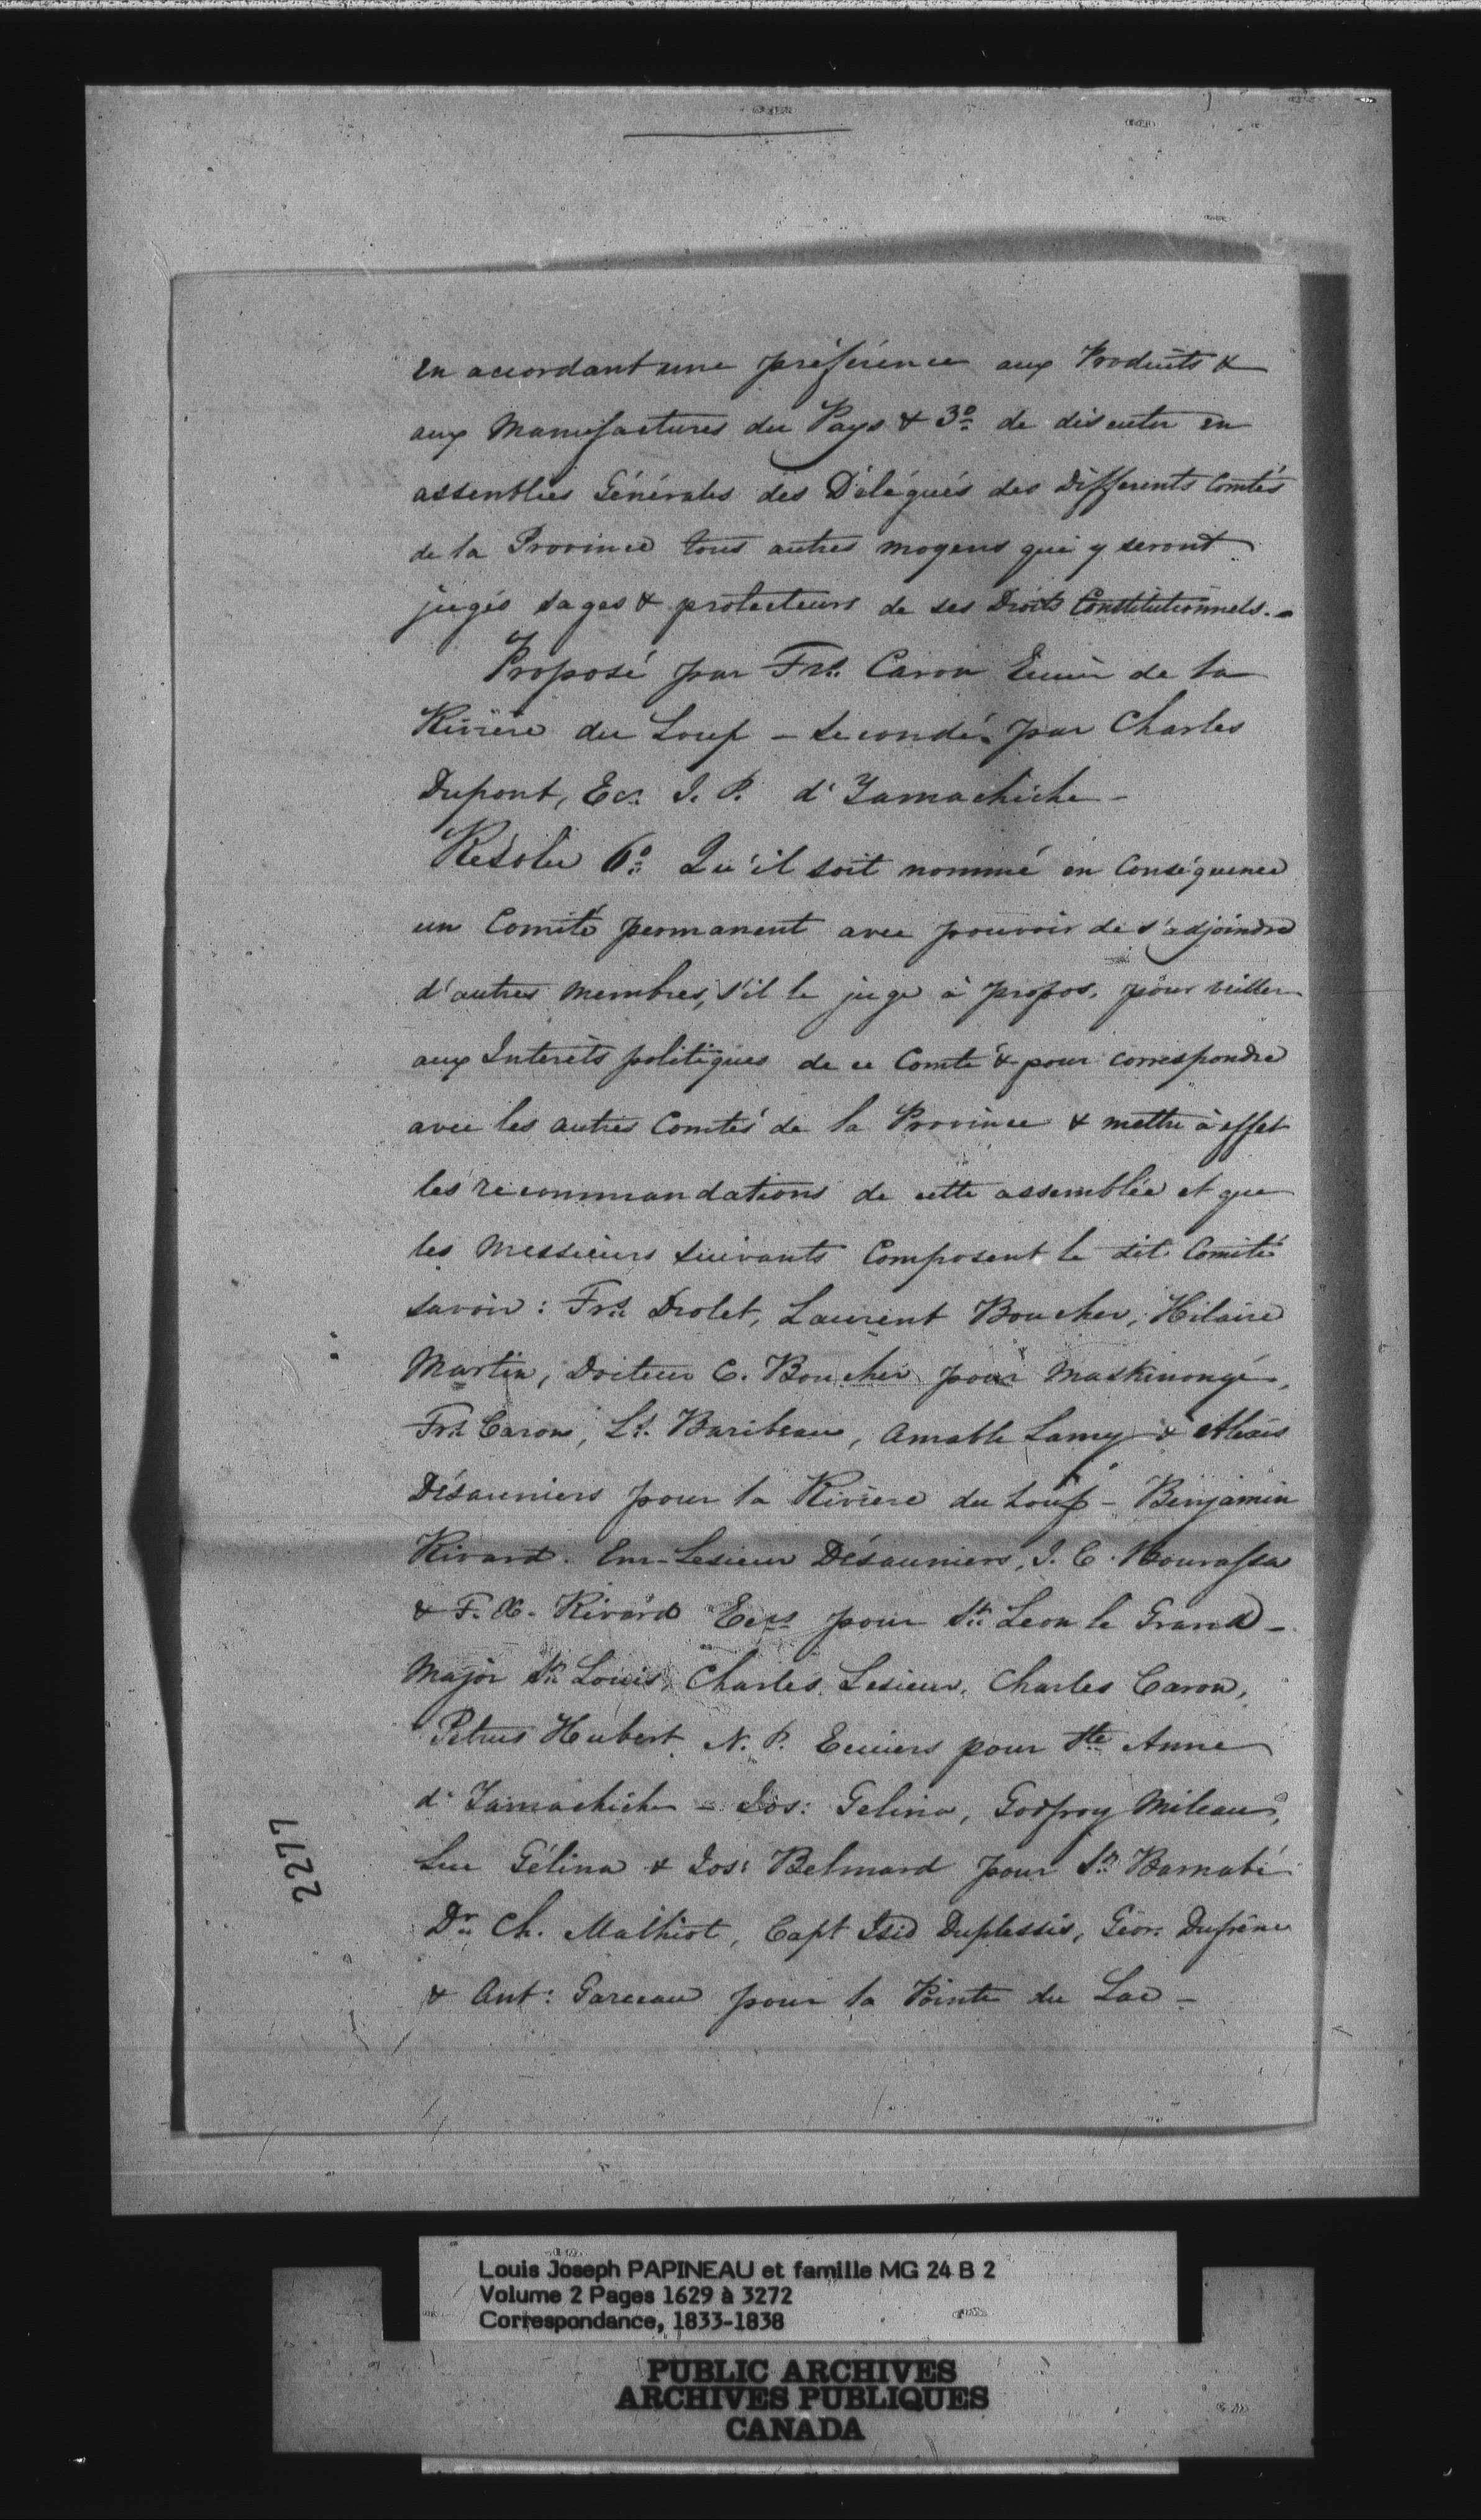 en accordant une préférence aux Produits &
aux Manufactures du Pays & 3º de discuter en
assemblées Générales des Délégués des differents Comtés
de la Province tous autres moyens qui y seront
jugés sages & protecteurs de ses Droits Constitutionnels.-
Proposé par Frs. Caron Ecuier de la
Rivière du Loup - secondé par Charles
Dupont, Ecr. J. P. d'Yamachiche -
Résolu 6º Qu'il soit nommé en Conséquence
un Comité permanent avec pouvoir de s'adjoindre
d'autres membres, s'il le juge à propos, pour veiller
aux Interêts politiques de ce Comté & pour correspondre
avec les autres Comtés de la Province & mettre à effet
les recommandations de cette assemblée et que
les Messieurs suivants Composent le dit Comité
savoir : Frs. Drolet, Laurent Boucher, Hilaire
Martin, Docteur C. Boucher pour Maskinongé,
Frs. Caron, Ls. Baribeau, Amable Lamy & Alexis
Désauniers pour la Rivière du Loup - Benjamin
Rivard. Em-Lesieur Désauniers, J. C. Bourassa
& F. X. Rivard Ecrs pour St. Leon le Grand -
Major St. Louis, Charles Lesieur, Charles Caron,
Petrus Hubert N. P. Ecuiers pour Ste Anne
d'Yamachiche - Jos: Gelina, Godfroy Mileau,
Luc Gélina & Jos: Belmard pour St. Barnabé
Dr. Ch. Mathiot, Capt Isid Duplessis, Geor: Dufrêne
& Ant: Garceau pour la Pointe du Lac -
2277
Louis Joseph PAPINEAU et famille MG 24 B 2
Volume 2 Pages 1629 à 3272
Correspondance, 1833-1838
PUBLIC ARCHIVES
ARCHIVES PUBLIQUES
CANADA